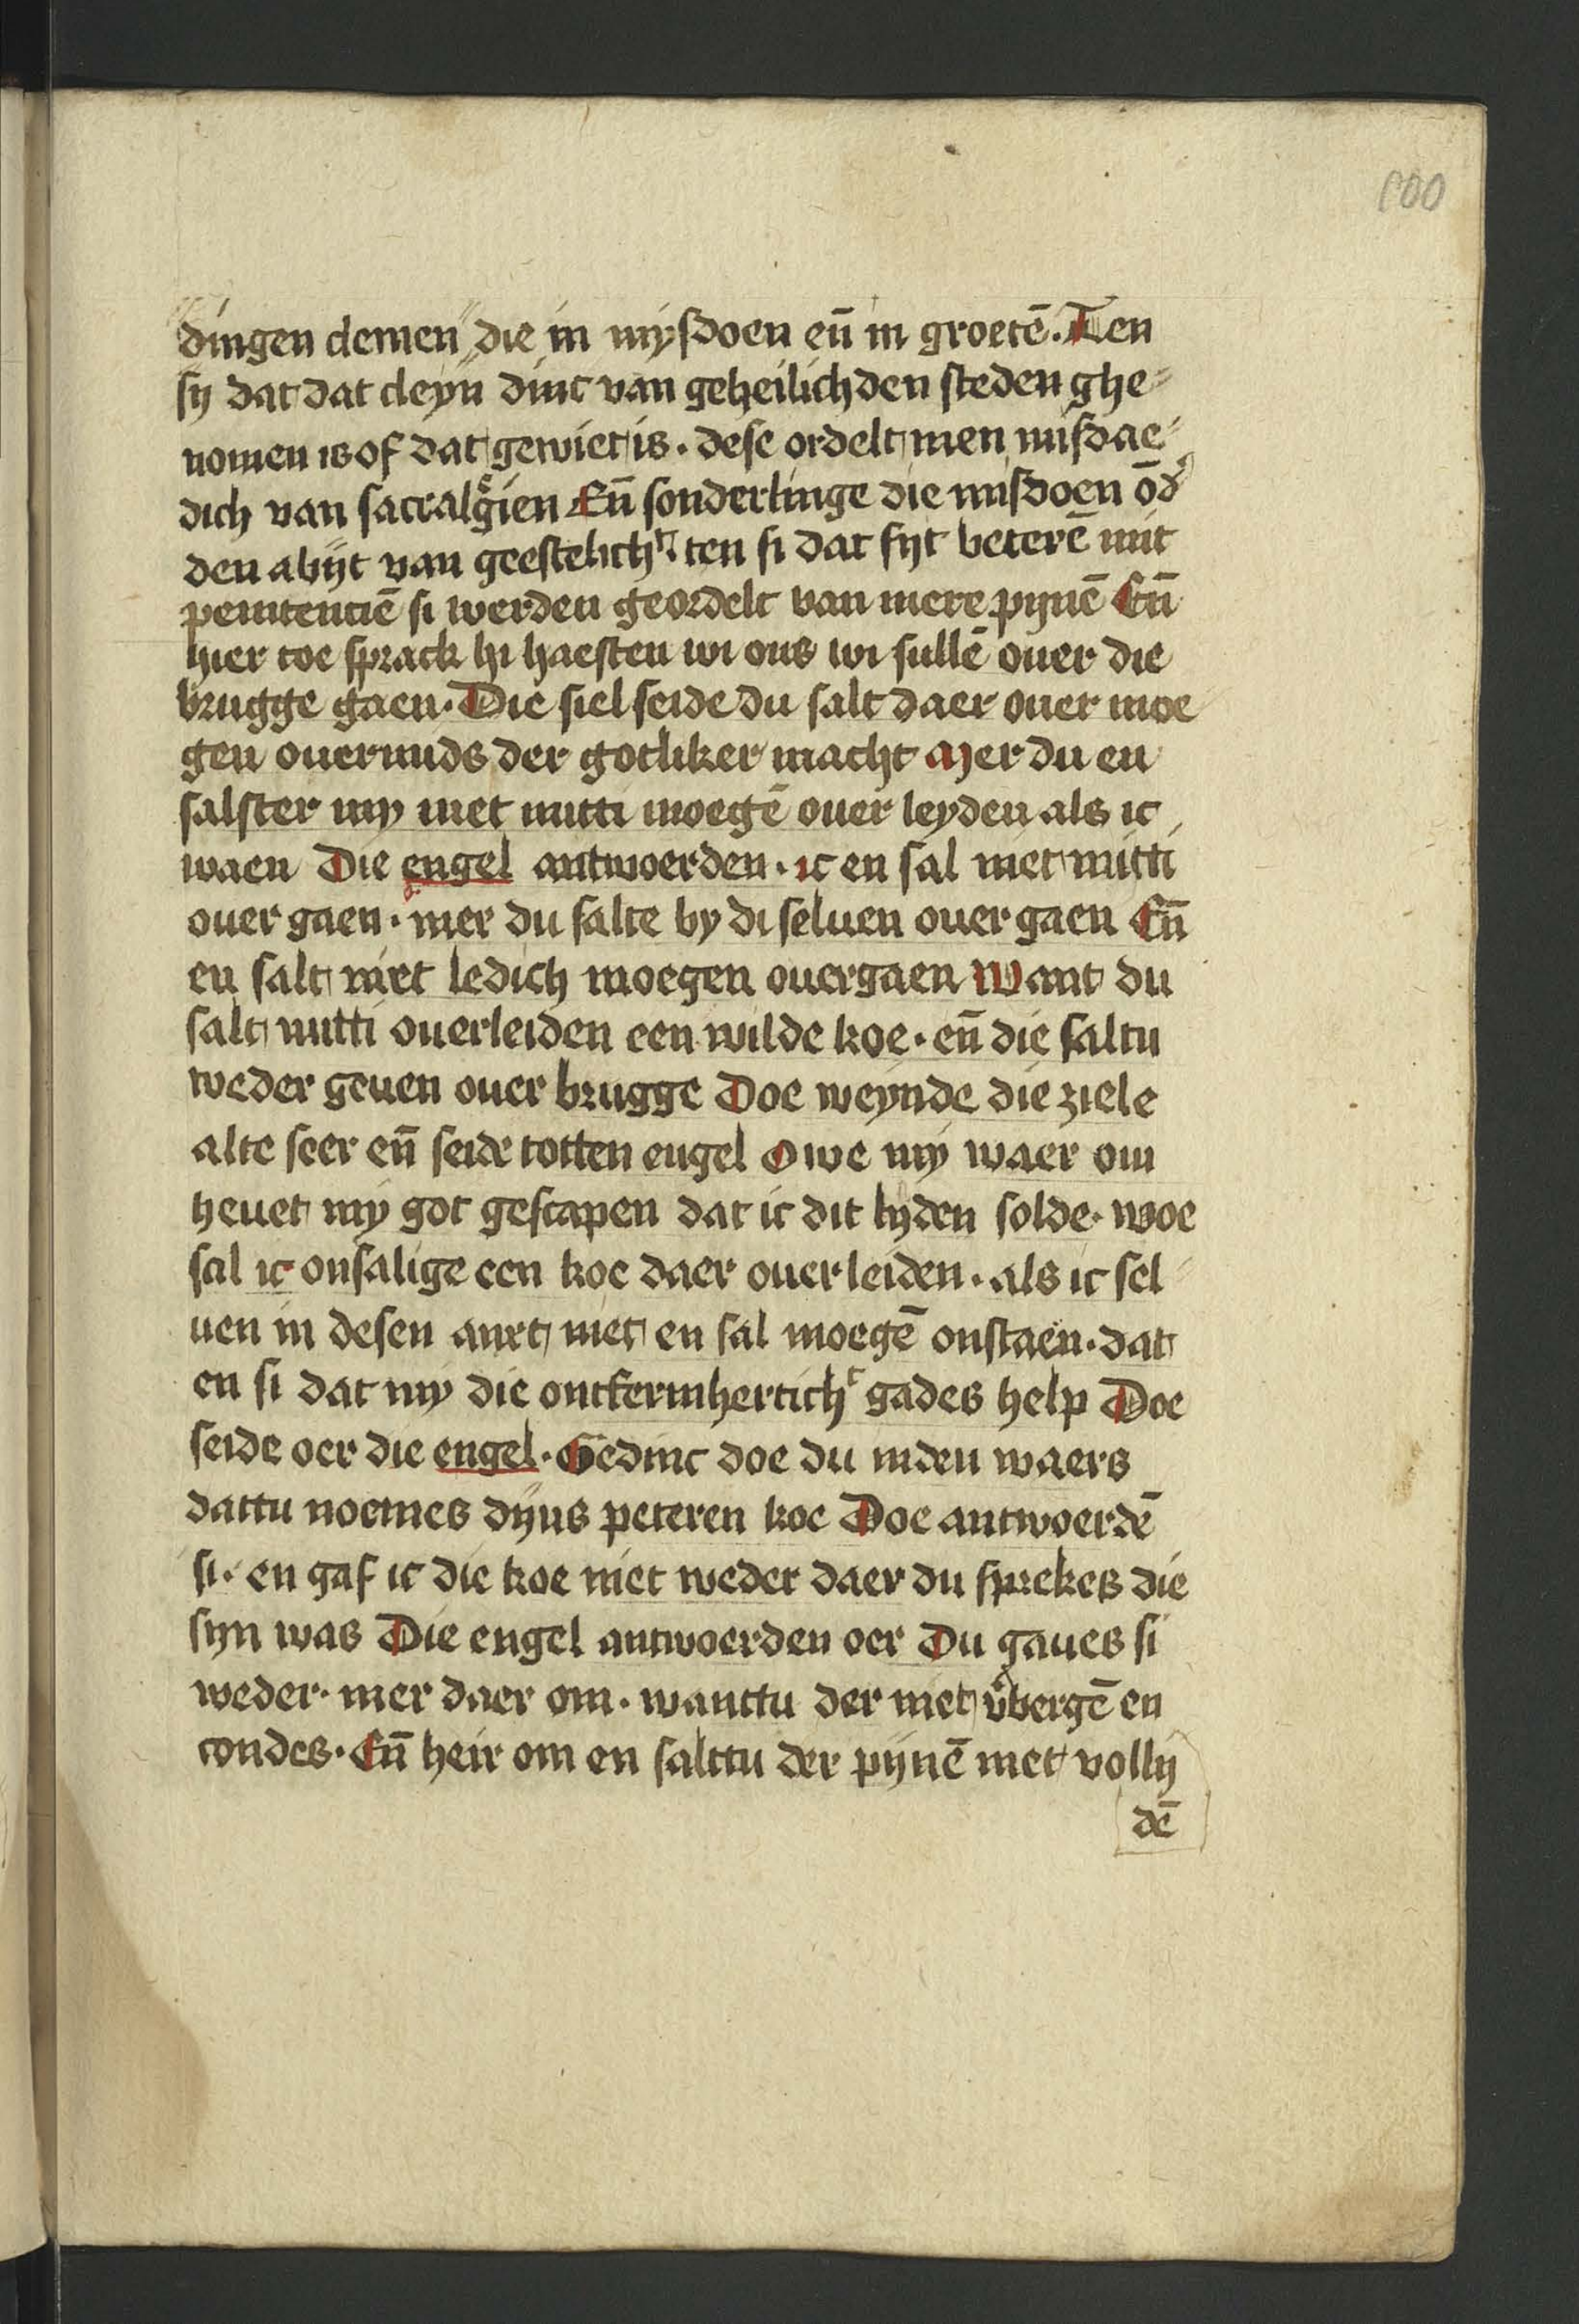 100
dingen clemen die in mysdoen eñ in groetē. Ten
sy dat dat cleyn dinc van geheilichden steden ghe-
nomen is of dat gewiet is. dese ordelt men misdae-
dich van sacralgien Eñ sonderlinge die misdoen ōd
den abijt van geestelicht. ten si dat sijt beterē mit
penitenciē si werden geordelt van mere pijnē Eñ
hier toe sprack hi haesten wi ons wi sullē ouer die
brugge gaen. Die siel seide du salt daer ouer moe
gen ouermids der gotliker macht Mer du en
salster my niet mitti moegē ouer leyden als ic
waen Die engel antwoerden. ic en sal niet mitti
ouer gaen. mer du salte by di seluen ouer gaen Eñ
en salt niet ledich moegen ouergaen Want du
salt mitti ouerleiden een wilde koe. eñ die saltu
weder geuen ouer brugge Doe weynde die ziele
alte seer eñ seide totten engel Owe my waer om
heuet my got gescapen dat ic dit lyden solde. woe
sal ic onsalige een koe daer ouer leiden. als ic sel
uen in desen anxt niet en sal moegē onstaen. dat
en si dat my die ontfermherticht gades help Doe
seide oer die engel. Gedinc doe du inden waers
dattu noemes dijns peteren koe Doe antwoerdē
si. en gaf ic die koe niet weder daer du sprekes die
syn was Die engel antwoerden oer Du gaues si
weder. mer daer om. wanttu der niet v̄bergē en
condes. Eñ heir om en salttu der pijnē niet vollij
dē